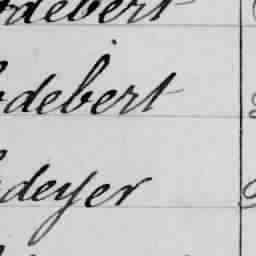 odebert
odebert
deyer